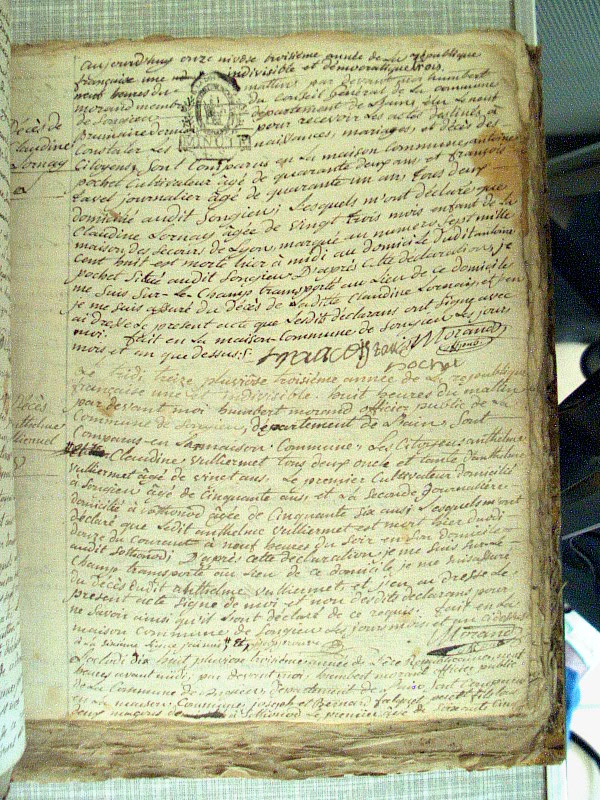 aujourdhuy onze nivose troisième année de la république
française une indivisible et démocratique
neuf heures du matin par devant moi humbert
morand membre du Conseil général de la commune
de Songieu département de l'ain, élu
pour recevoir les actes destinés à
Constater les naissances, mariages et décès des
Citoyens, sont Comparus en la maison Commune antoine
pochet Cultivateur âgé de quarante deux ans et françois
tavel journalier âgé de quarante un ans, tous deux
domicilié audit Songieu; lesquels m'ont déclaré que
Claudine Lornay âgée de vingt trois mois enfant de la
maison de Lyon, marqué au numéro sept mille
cent huit est morte hier à midi au domicile dudit antoine
pochet situé audit Songieu; D'après cette déclaration, je
me suis sur le Champ transporté au lieu de ce domicile
je me suis assuré du Décès de ladite Claudine Lornais, et j'en
ai dressé le présent acte que lesdits déclarans ont signé avec
moi. fait en la maison Commune de Songieu les jour
mois et an que dessus.
Morand
pochet
Décès de
Claudine
Lornay
Le tridi, treize pluviose troisième année de la république
française une et indivisible. huit heures du mattin
par devant moi humbert morand officier public de la
Commune de Songieu, département de l'ain, Sont
Comparus en la maison Commune, les Citoyens anthelme
Claudine Vulliermet tous deux oncle et tante d'anthelme
Vulliermet âgé de vingt ans. Le premier Cultivateur domicilié
à Songieu âgé de Cinquante ans et la Seconde Journalière
domicilié à Sothonod âgée de Cinquante six ans; lesquels m'ont
déclaré que ledit anthelme Vulliermet est mort hier duodi
douze du courant à neuf heures du soir en son domicile
audit Sothonod; D'après cette déclaration je me suis sur le
Champ transporté au lieu de ce domicile je me suis assuré
du Décès dudit anthelme Vulliermet et j'en ai dressé le
présent acte Signé de moi et non desdits déclarans pour
ne Savoir ainsi qu'ils l'ont déclaré de ce requis. fait en la
maison Commune de Songieu les jour mois et an ci dessus
Morand
Décès
anthelme
Vulliermet
octodi dix huit pluviose troisième année de l'ère Républicaine
heures avant midi, par devant moi humbert morand officier public
de la Commune de Songieu, département de l'ain, sont Comparus
en la maison Commune, joseph et Bernard